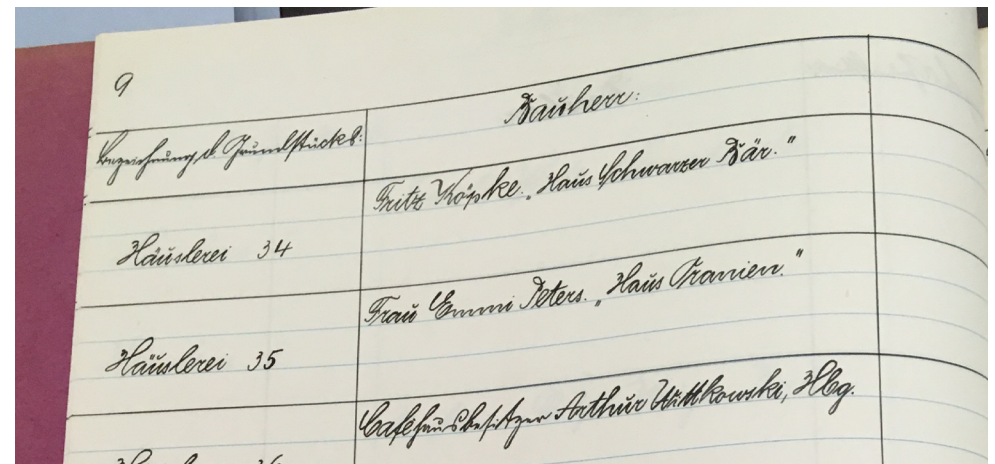 9
Bezeichnung d. Grundstücks:
Bauherr:
Häuslerei 34
Fritz Köpke. „Haus Schwarzer Bär."
Häuslerei 35
Frau Emmi Peters. „Haus Oranien."
Cafehausbesitzer Arthur Wittkowski, Hbg.